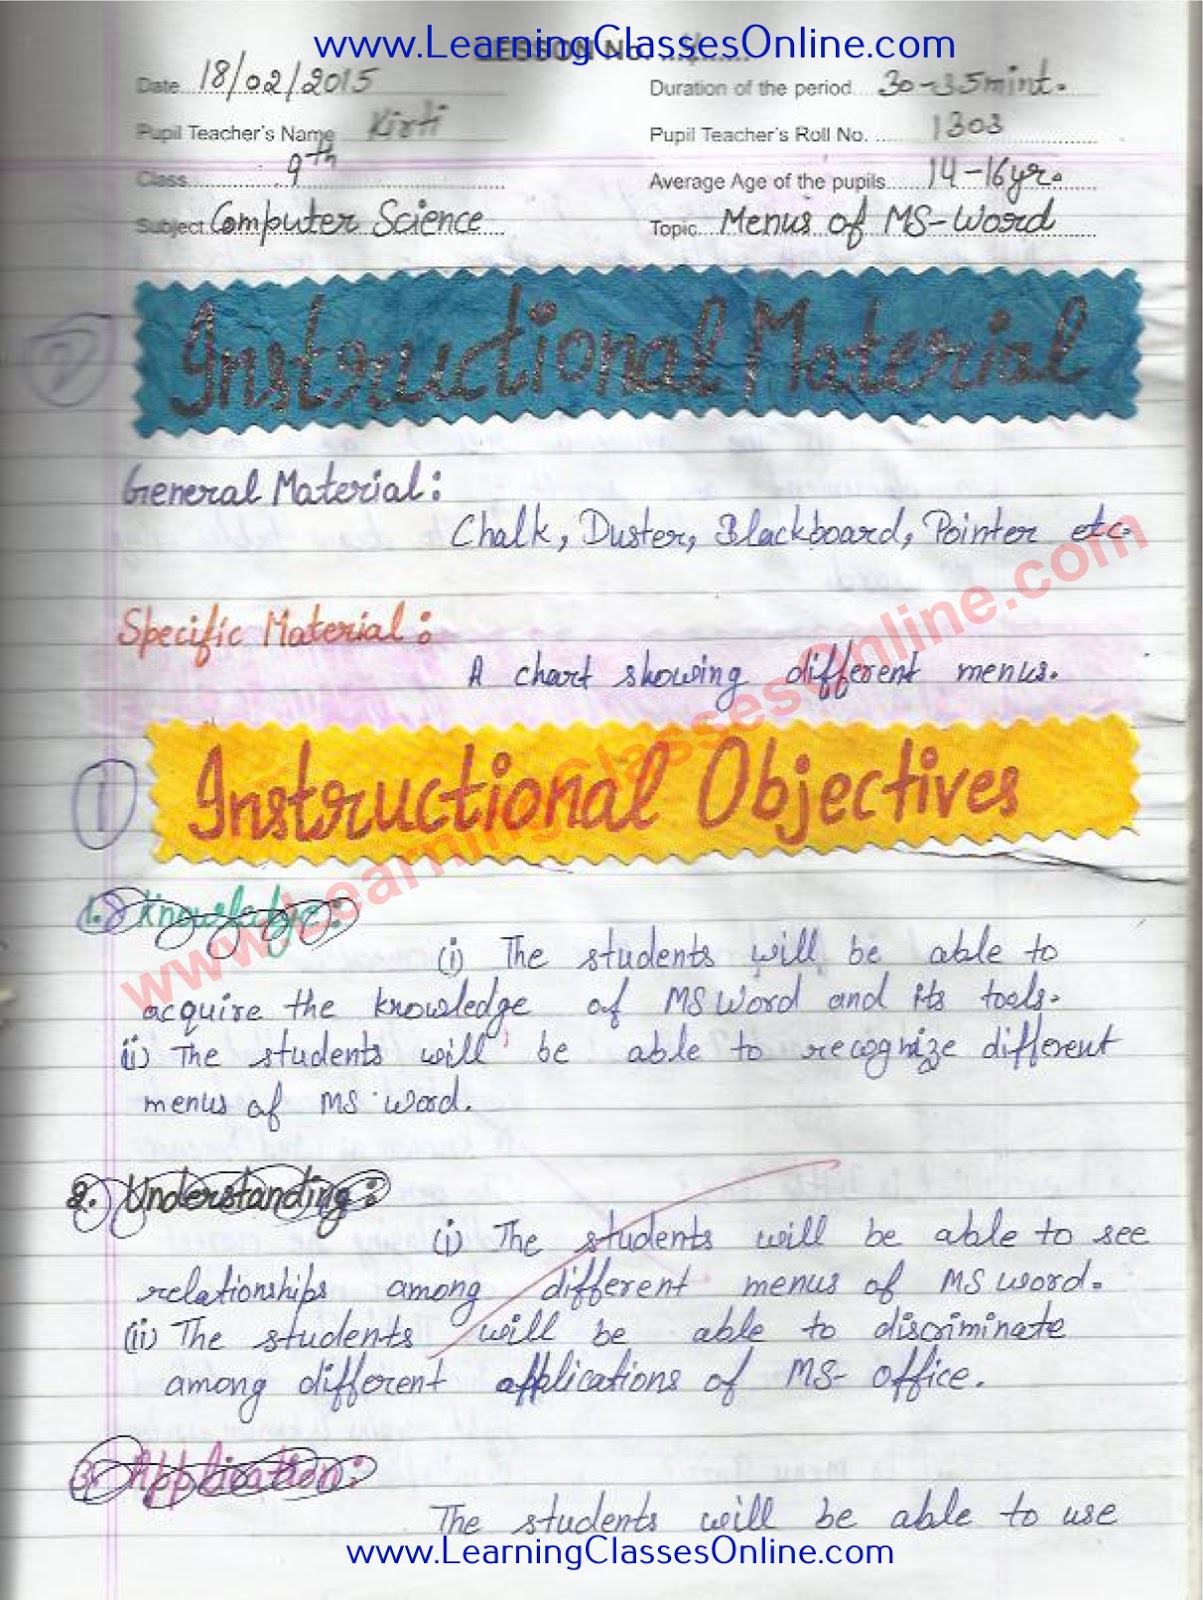 www.LearningClassesOnline.com
LESSON No.
Date 18/02/2015 Duration of the period 30-35mint.
Pupil Teacher's Name Kirti Pupil Teacher's Roll No. 1303
Class 9th Average Age of the pupils 14-16yr.
Subject Computer Science Topic Menus of MS-Word
2 Instructional Material
General Material:
Chalk, Duster, Blackboard, Pointer etc.
Specific Material:
A chart showing different menus.
1 Instructional Objectives
www.LearningClassesOnline.com
1. Knowledge:
(i) The students will be able to
acquire the knowledge of MS Word and its tools.
(ii) The students will be able to recognize different
menus of MS word.
2. Understanding:
(i) The students will be able to see
relationships among different menus of MS word.
(ii) The students will be able to discriminate
among different applications of MS-office.
3. Application:
The students will be able to use
www.LearningClassesOnline.com